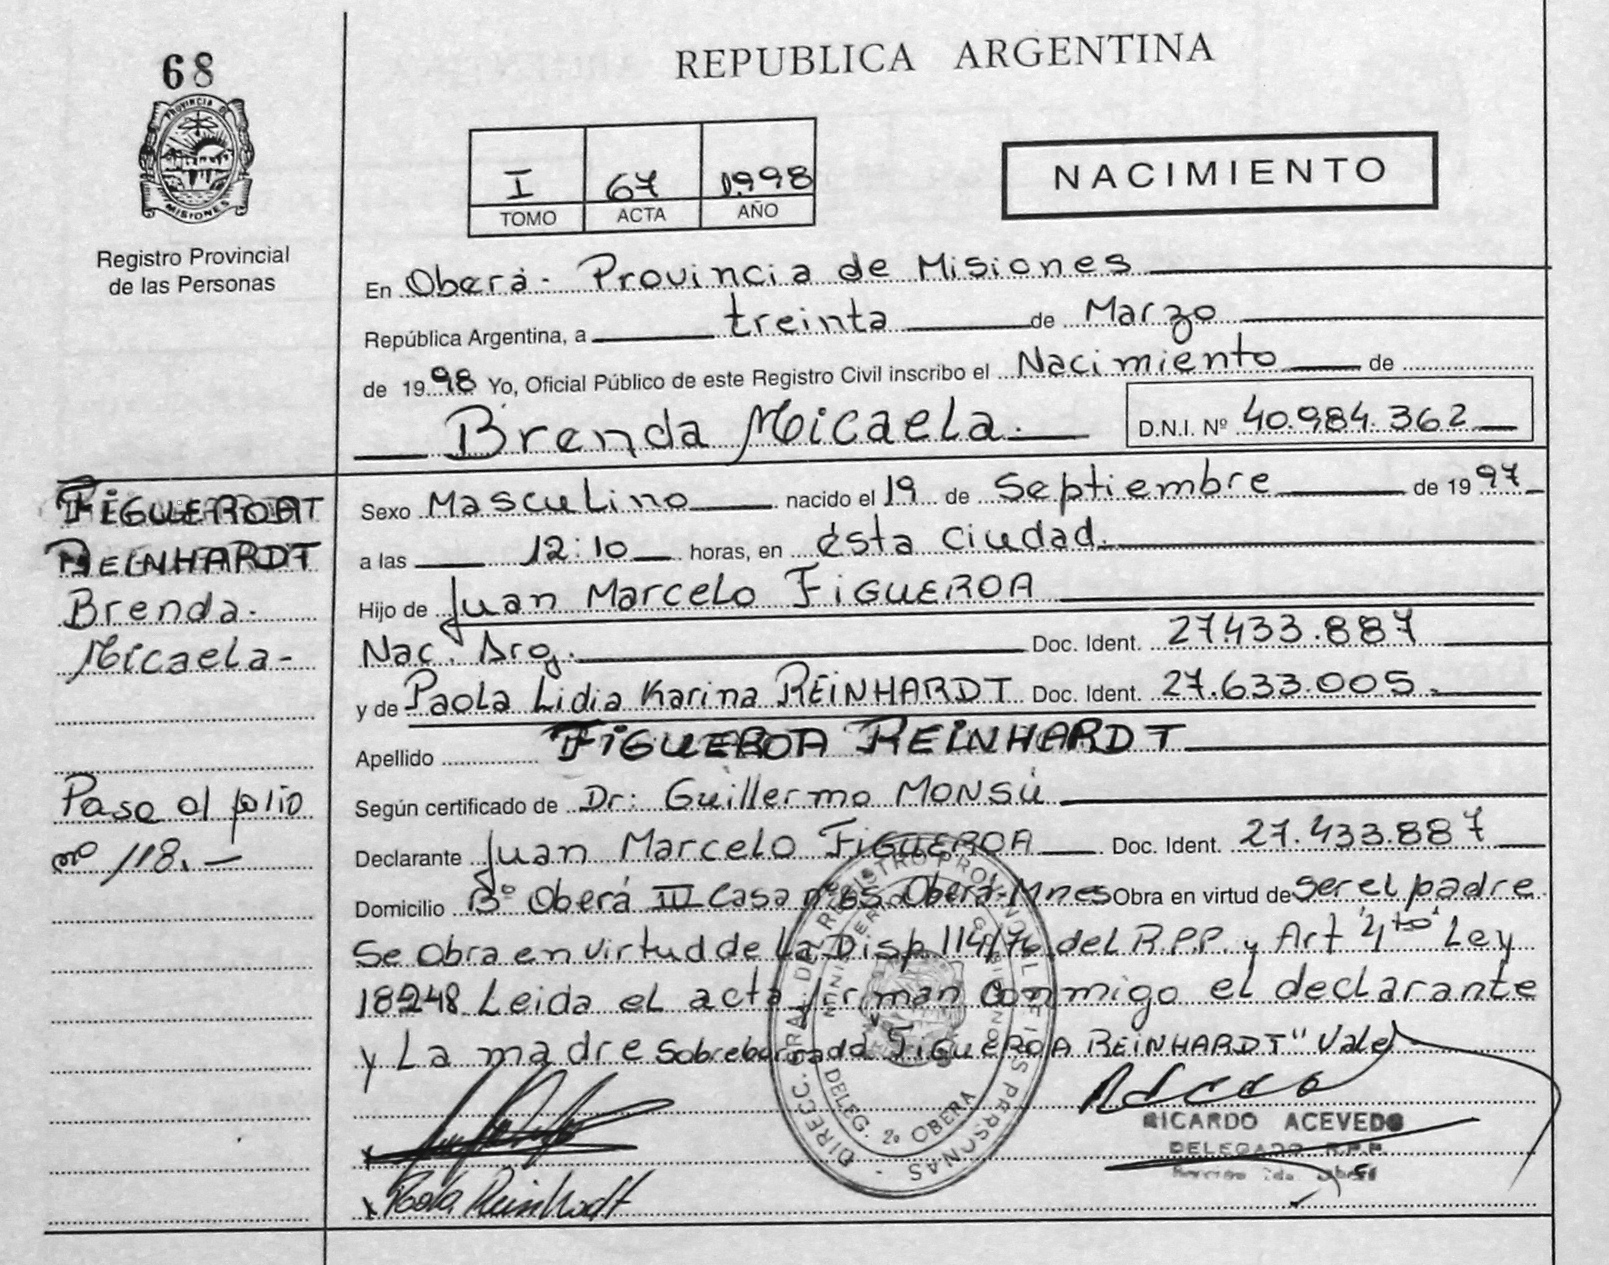 68
REPUBLICA ARGENTINA
PROVINCIA DE
MISIONES
Registro Provincial
de las Personas
I 67 1998
TOMO ACTA AÑO
NACIMIENTO
En Oberá - Provincia de Misiones
República Argentina, a treinta de Marzo
de 1998 Yo, Oficial Público de este Registro Civil inscribo el Nacimiento de
Brenda Micaela.
D.N.I. Nº 40.984.362
FIGUEROA
REINHARDT
Brenda-
Micaela-
Paso al folio
nº 118.-
Sexo Masculino nacido el 19 de Septiembre de 1997
a las 12:10 horas, en ésta Ciudad.
Hijo de Juan Marcelo FIGUEROA
Nac. Arg. Doc. Ident. 27.433.887
y de Paola Lidia Karina REINHARDT Doc. Ident. 27.633.005.
Apellido FIGUEROA REINHARDT
Según certificado de Dr: Guillermo MONSÚ
Declarante Juan Marcelo FIGUEROA Doc. Ident. 27.433.887
Domicilio Bº Oberá III Casa nº 65 Oberá-Mnes Obra en virtud de ser el padre
Se Obra en virtud de La Disp 114/76 del R.P.P. y Art 4to Ley
18248. Leida el acta firman conmigo el declarante
y La madre sobreborrado "FIGUEROA REINHARDT" Vale
DIRECC. GRAL. DEL REGISTRO PROVINCIAL DE LAS PERSONAS
DELEG. 2ª OBERA
RICARDO ACEVEDO
DELEGADO R.P.P.
Paola Reinhardt